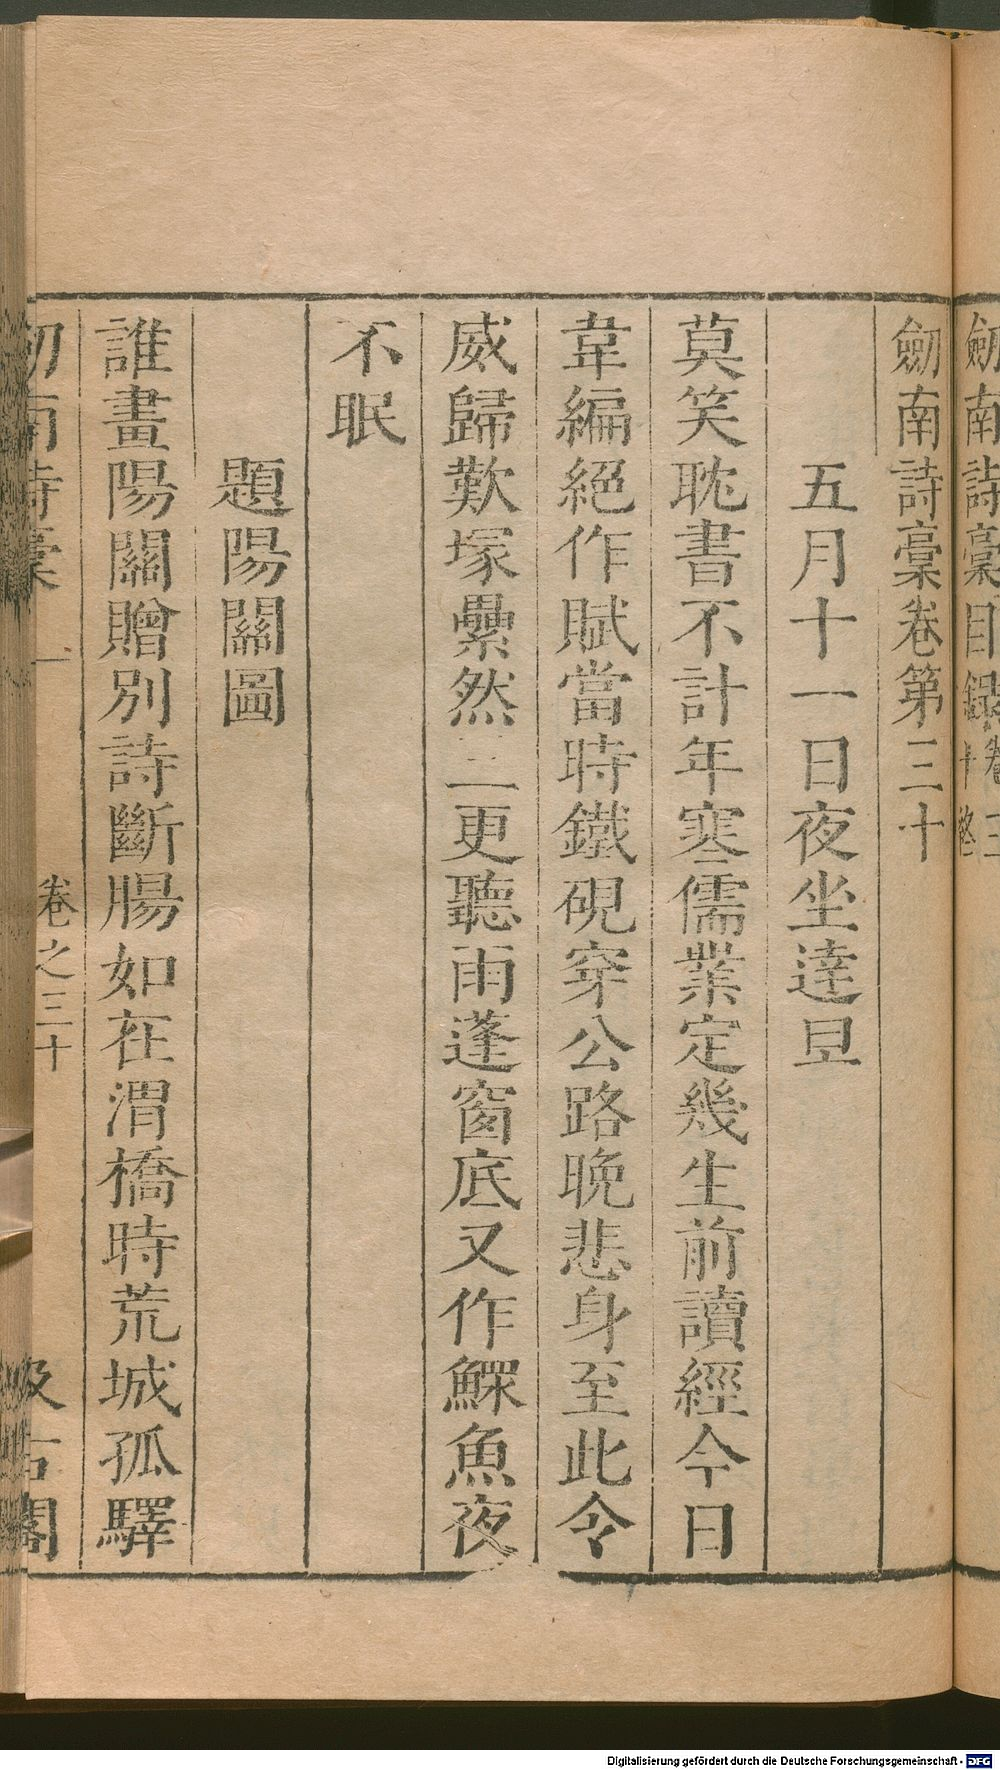 劒南詩稾目錄
劒南詩稾卷第三十
五月十一日夜坐達旦
莫笑耽書不計年寒儒業定幾生前讀經今日
韋編絕作賦當時鐵硯穿公路晚悲身至此令
威歸歎塚纍然二更聽雨蓬窗底又作鰥魚夜
不眠
題陽關圖
誰畫陽關贈別詩斷腸如在渭橋時荒城孤驛
卷之三十
Digitalisierung gefördert durch die Deutsche Forschungsgemeinschaft - DFG